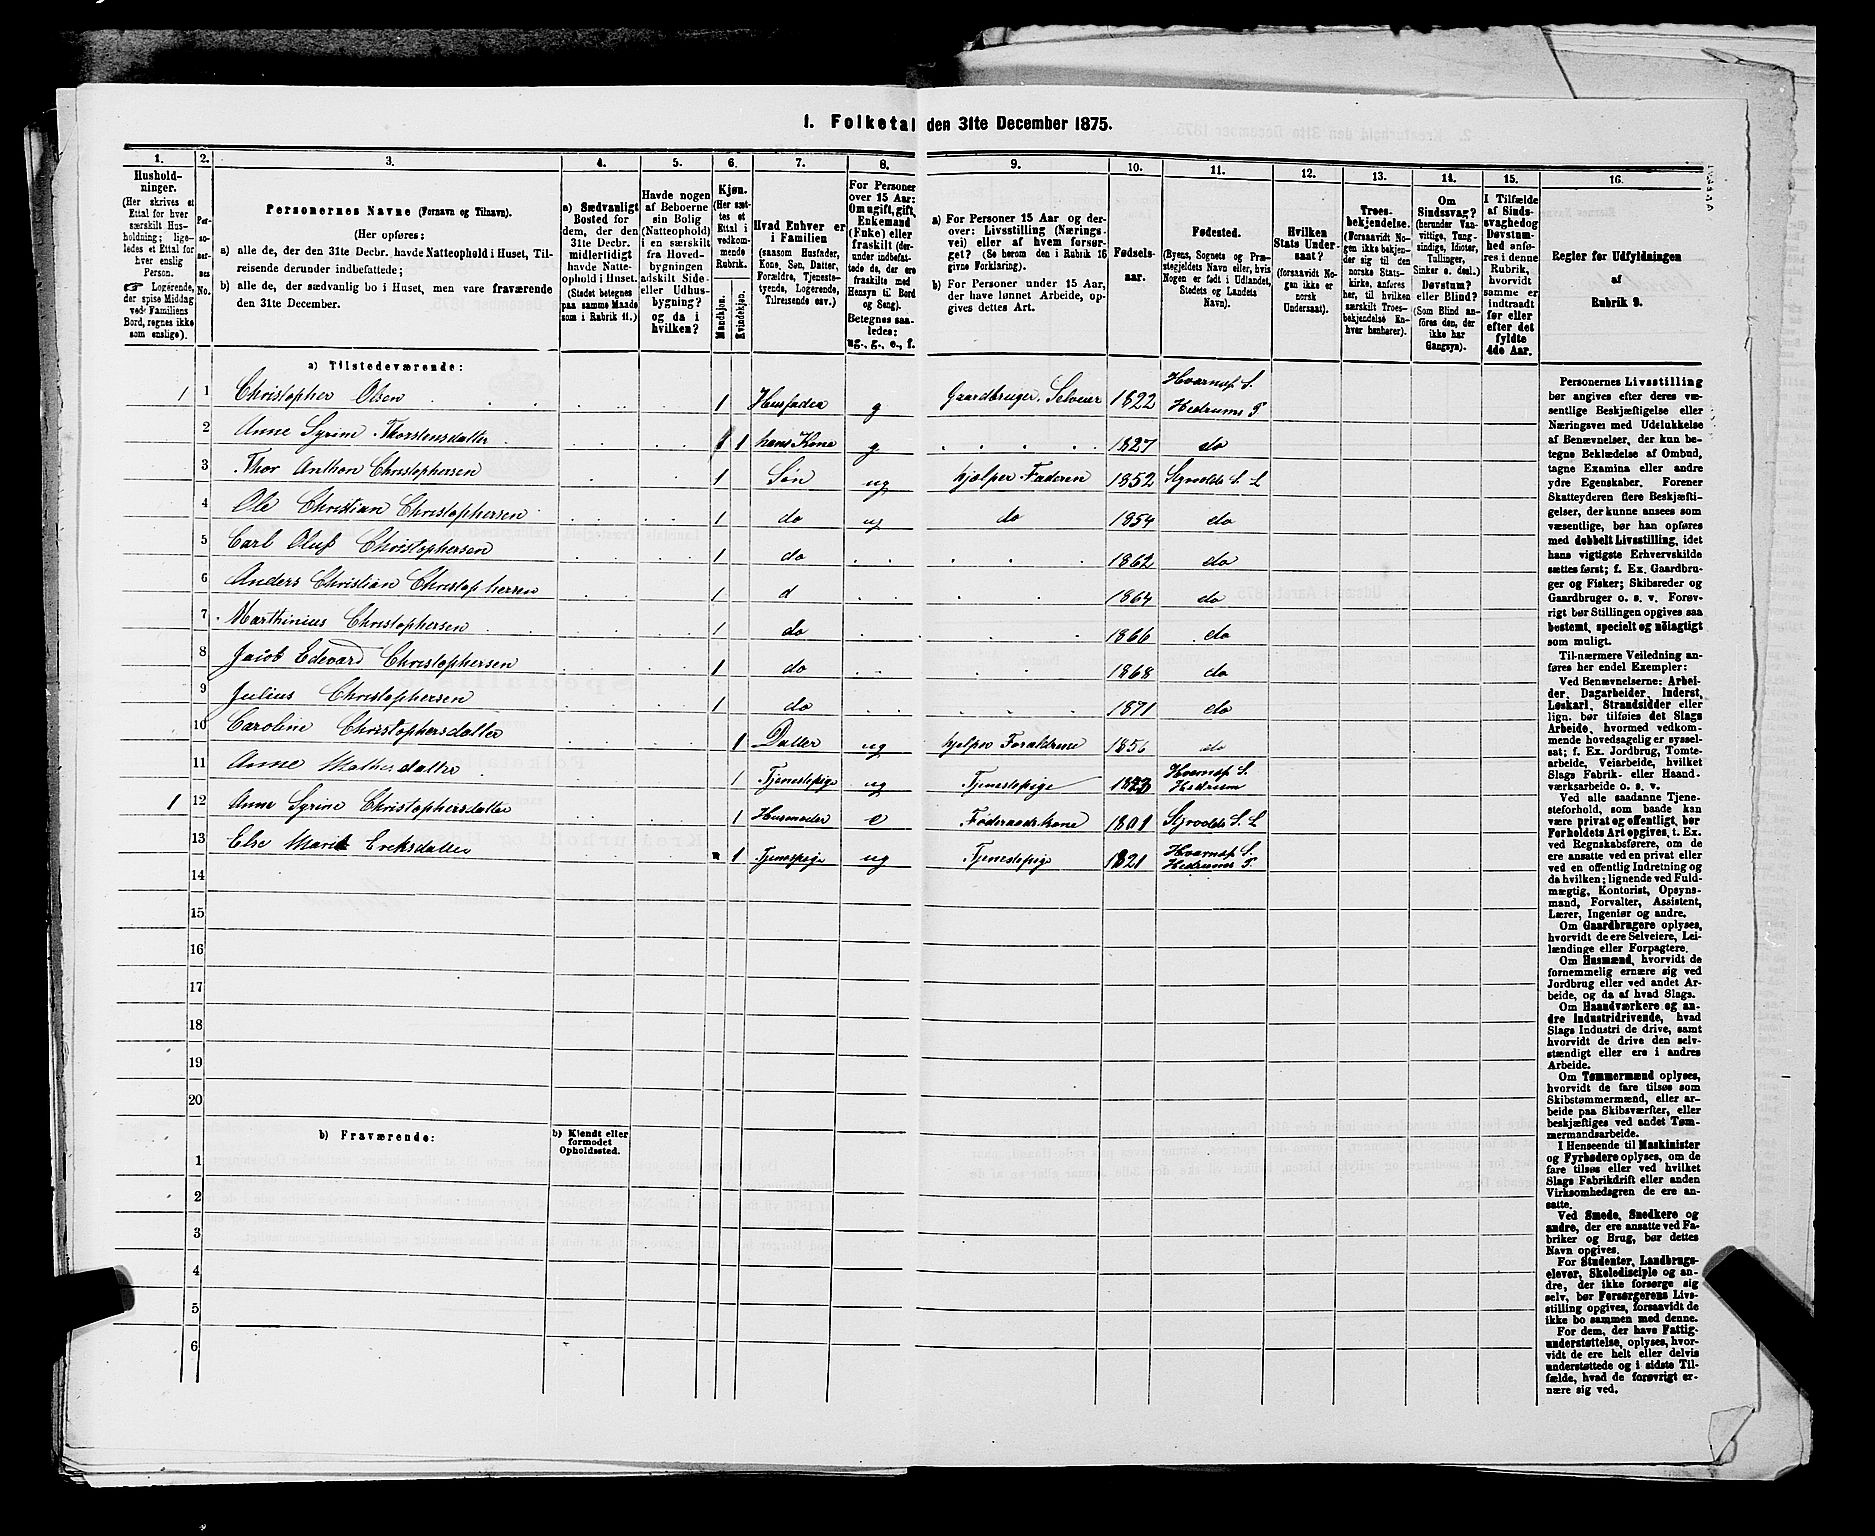 1. Folketal den 31te December 1875.
1. 2. 3. 4. 5. 6. 7. 8. 9. 10. 11. 12. 13. 14. 15. 16.
Hushold-
ninger.
(Her skrives et
Ettal for hver
særskilt Hus-
holdning; lige-
ledes et Ettal for
hver enslig
Person.
☞ Logerende,
der spise Middag
ved Familiens
Bord, regnes ikke
som enslige).
Per-
so-
ner-
nes
No.
Personernes Navne (Fornavn og Tilnavn).
(Her opføres:
a) alle de, der den 31te Decbr. havde Natteophold i Huset, Til-
reisende derunder indbefattede;
b) alle de, der sædvanlig bo i Huset, men vare fraværende
den 31te December.
a) Sædvanligt
Bosted for
dem, der den
31te Decbr.
midlertidigt
havde Natte-
ophold i Huset.
(Stedet betegnes
paa samme Maade
som i Rubrik 11.)
Havde nogen
af Beboerne
sin Bolig
(Natteophold)
i en særskilt
fra Hoved-
bygningen
adskilt Side-
eller Udhus-
bygning?
og da i
hvilken?
Kjøn.
(Her sæt-
tes et
Ettal i
vedkom-
mende
Rubrik.
Mandkjøn.
Kvindekjøn.
Hvad Enhver er
i Familien
(saasom Husfader,
Kone, Søn, Datter,
Forældre, Tjeneste-
tyende, Logerende,
Tilreisende osv.)
For Personer
over 15 Aar:
Om ugift, gift,
Enkemand
(Enke) eller
fraskilt (der-
under indbefat-
tede de, der ere
fraskilte med
Hensyn til Bord
og Seng).
Betegnes saa-
ledes:
ug., g., e., f.
a) For Personer 15 Aar og der-
over: Livsstilling (Nærings-
vei) eller af hvem forsør-
get? (Se herom den i Rubrik 16
givne Forklaring).
b) For Personer under 15 Aar,
der have lønnet Arbeide, op-
gives dettes Art.
Fødsels-
aar.
Fødested.
(Byens, Sognets og Præ-
stegjeldets Navn eller, hvis
Nogen er født i Udlandet,
Stedets og Landets
Navn).
Hvilken
Stats Under-
saat?
(forsaavidt No-
gen ikke er
norsk
Undersaat).
Troes-
bekjendelse.
(Forsaavidt No-
gen ikke bekjen-
der sig til den
norske Stats-
kirke, anføres
her, til hvilken
særskilt Troes-
bekjendelse En-
hver henhører).
Om
Sindssvag?
(herunder Van-
vittige, Tung-
sindige, Idioter,
Tullinger,
Sinker o. desl.)
Døvstum?
eller Blind?
(Som Blind an-
føres den, der
ikke har
Gangsyn).
I Tilfælde
af Sinds-
svaghed og
Døvstum-
hed anfø-
res i denne
Rubrik,
hvorvidt
samme er
indtraadt
før eller
efter det
fyldte
4de Aar.
Regler for Udfyldningen
af
Rubrik 9.
a) Tilstedeværende:
1 1 Christopher Olsen 1 Husfader g Gaardbruger, Selveier 1822 Hvarnæs S. Hedrums P
2 Anne Syrine Thorstensdatter 1 hans Kone g 1827 do
3 Thor Anthon Christophersen 1 Søn ug hjelper Faderen 1852 Styrvolds S. L
4 Ole Christian Christophersen 1 do ug do 1854 do
5 Carl Oluf Christophersen 1 do 1862 do
6 Anders Christian Christophersen 1 d 1864 do
7 Marthinius Christophersen 1 do 1866 do
8 Jacob Edevard Christophersen 1 do 1868 do
9 Julius Christophersen 1 do 1871 do
10 Caroline Christophersdatter 1 Datter ug hjelper Forældrene 1856 do
11 Anne Mathisdatter 1 Tjenestepige ug Tjenestepige 1823 Hvarnæs S. Hedrum
1 12 Anne Syrine Christophersdatter 1 Husmoder e Føderaadskone 1801 Styrvolds S. L
13 Else Marie Eriksdatter 1 Tjenepige ug Tjenestepige 1821 Hvarnæs S. Hedrums P
14
15
16
17
18
19
20
b) Fraværende:
b) Kjendt eller
formodet
Opholdssted.
1
2
3
4
5
6
Personernes Livsstilling
bør angives efter deres væ-
sentlige Beskjæftigelse eller
Næringsvei med Udelukkelse
af Benævnelser, der kun be-
tegne Beklædelse af Ombud,
tagne Examina eller andre
ydre Egenskaber. Forener
Skatteyderen flere Beskjæfti-
gelser, der kunne ansees som
væsentlige, bør han opføres
med dobbelt Livsstilling, idet
hans vigtigste Erhvervskilde
sættes først; f. Ex. Gaardbru-
ger og Fisker; Skibsreder og
Gaardbruger o. s. v. Forøv-
rigt bør Stillingen opgives saa
bestemt, specielt og nøiagtigt
som muligt.
Til nærmere Veiledning an-
føres her endel Exempler:
Ved Benævnelserne: Arbei-
der, Dagarbeider, Inderst,
Løskarl, Strandsidder eller
lign. bør tilføies det Slags
Arbeide, hvormed vedkom-
mende hovedsagelig er syssel-
sat; f. Ex. Jordbrug, Tomte-
arbeide, Veiarbeide, hvilket
Slags Fabrik- eller Haand-
værksarbeide o. s. v.
Ved alle saadanne Tjene-
steforhold, som baade kan
være privat og offentligt, bør
Forholdets Art opgives, t. Ex.
ved Regnskabsførere, om de
ere ansatte ved en privat eller
ved en offentlig Indretning og
da hvilken; lignende ved Fuld-
mægtig, Kontorist, Opsyns-
mand, Forvalter, Assistent,
Lærer, Ingeniør og andre.
Om Gaardbrugere oplyses,
hvorvidt de ere Selveiere, Lei-
lændinge eller Forpagtere.
Om Husmænd, hvorvidt de
fornemmelig ernære sig ved
Jordbrug eller ved andet Ar-
beide, og da af hvad Slags.
Om Haandværkere og an-
dre Industridrivende, hvad
Slags Industri de drive, samt
hvorvidt de drive den selv-
stændigt eller ere i andres
Arbeide.
Om Tømmermænd oplyses,
hvorvidt de fare tilsøs som
Skibstømmermænd, eller ar-
beide paa Skibsværfter, eller
beskjæftiges ved andet Tøm-
mermandsarbeide.
I Henseende til Maskinister
og Fyrbødere oplyses, om de
fare tilsøs eller ved hvilket
Slags Fabrikdrift eller anden
Virksomhedsgren de ere an-
satte.
Ved Smede, Snedkere og
andre, der ere ansatte ved Fa-
briker og Brug, bør dettes
Navn opgives.
For Studenter, Landbrugs-
elever, Skoledisciple og an-
dre, der ikke forsørge sig
selv, bør Forsørgerens Livs-
stilling opgives, forsaavidt de
ikke bo sammen med denne.
For dem, der have Fattig-
understøttelse, oplyses, hvor-
vidt de ere helt eller delvis
understøttede og i sidste Til-
fælde, hvad de forøvrigt er-
nære sig ved.